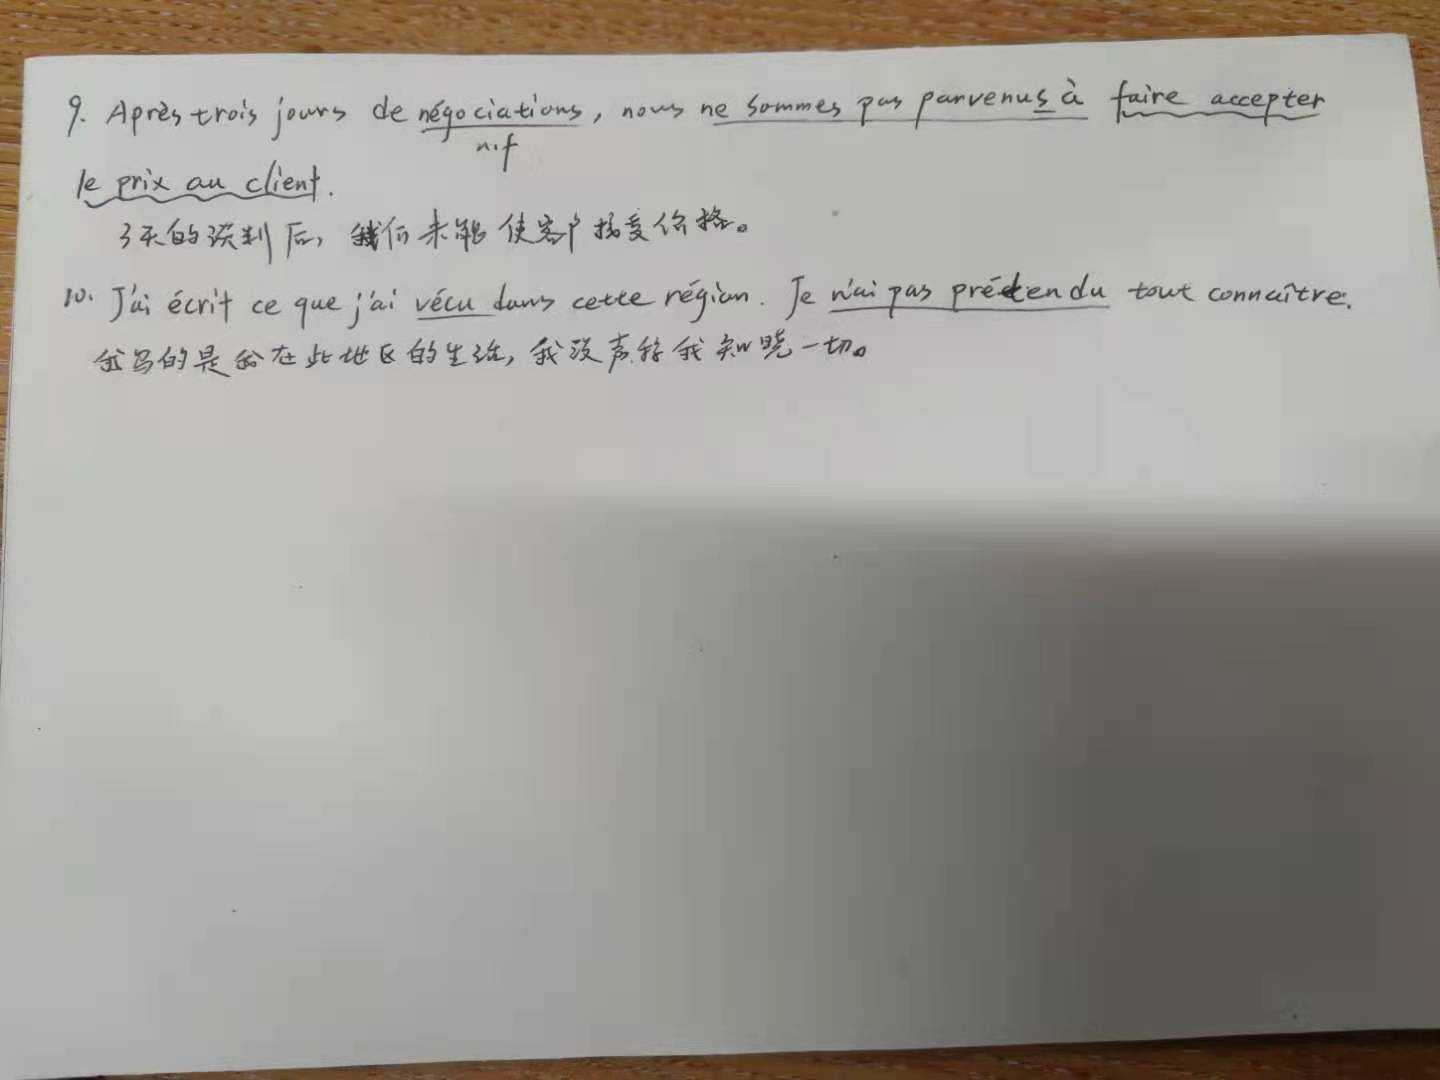 9. Après trois jours de négociations, nous ne sommes pas parvenus à faire accepter
n.f
le prix au client.
3天的谈判后，我们未能使客户接受价格。
10. J'ai écrit ce que j'ai vécu dans cette région. Je n'ai pas prétendu tout connaître.
我写的是我在此地区的生活，我没声称我知晓一切。